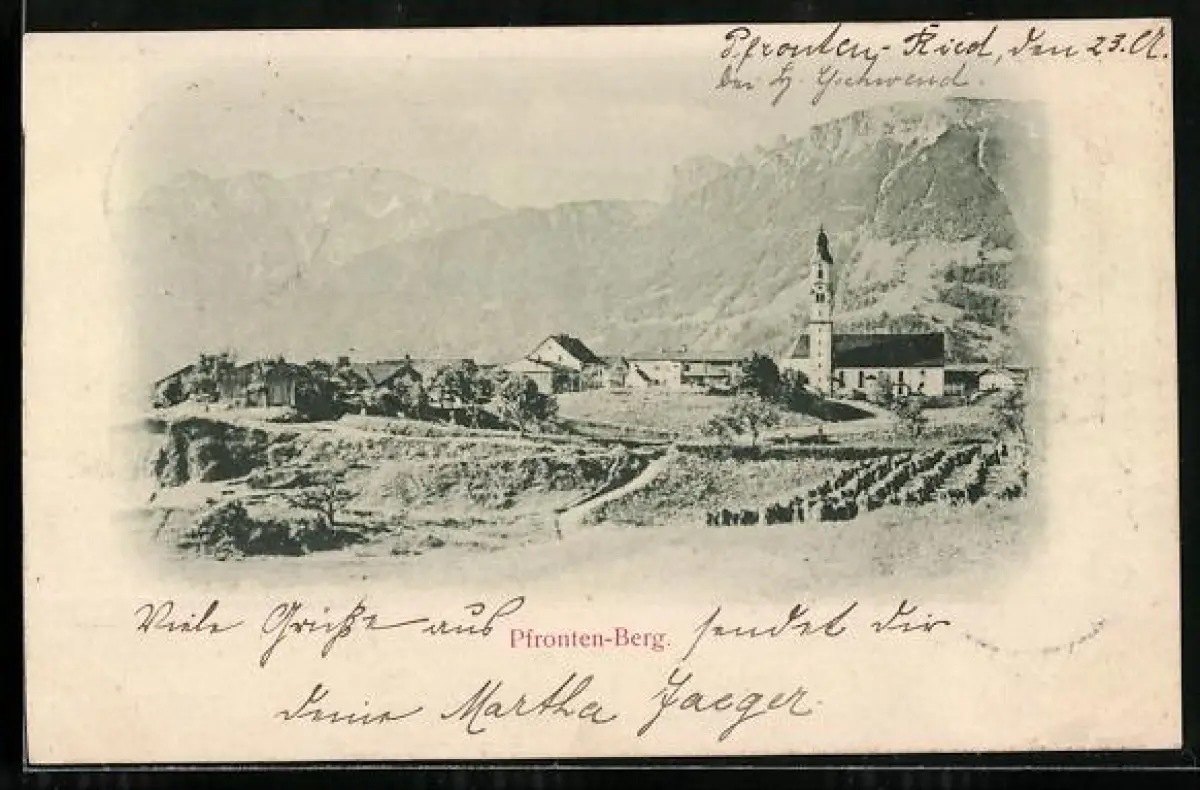 Pfronten-Ried, den 23.
bei H. Gschwend.
Viele Grüße aus Pfronten-Berg. sendet dir
deine Martha Jaeger.